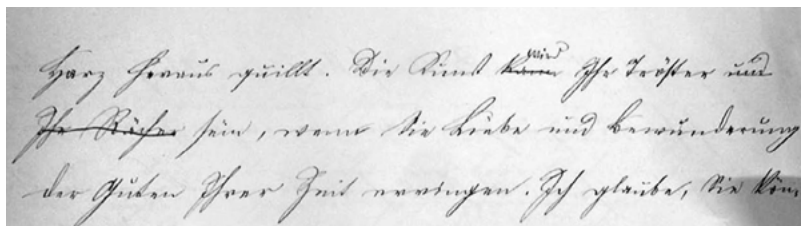 Harz heraus quillt. Die Kunst kann wird Ihr Tröster und
Ihr Rächer sein, wenn Sie Liebe und Bewunderung
der Guten Ihrer Zeit erringen. Ich glaube, Sie kön-